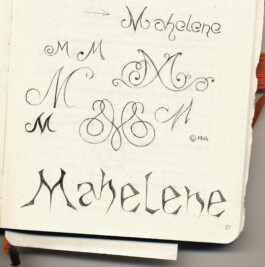 Mahelene
M M
M M
M M M
© MIA
Mahelene
27